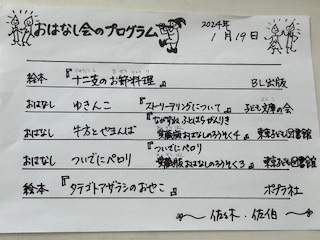 おはなし会のプログラム
2024年
1月19日
絵本 『十二支のお節料理』 BL出版
おはなし ゆきんこ 『ストーリーテリングについて』 子ども文庫の会
おはなし 牛方とやまんば 愛蔵版おはなしのろうそく4』 東京子ども図書館
『ついでにペロリ
おはなし ついでにペロリ 愛蔵版おはなしのろうそく3』 東京子ども図書館
絵本 『タテゴトアザラシのおやこ』 ポプラ社
〜佐々木・佐伯〜